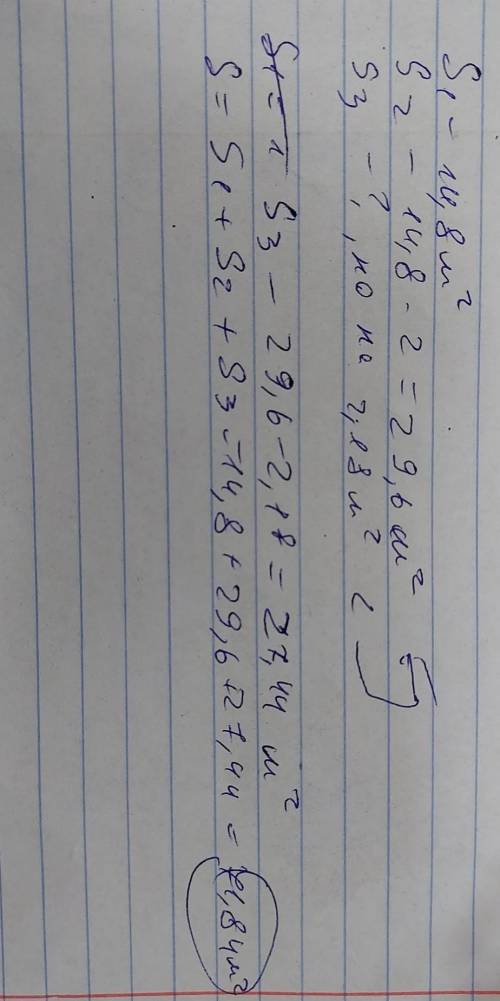 S₁ - 14,8 м²
S₂ - 14,8 · 2 = 29,6 м²
S₃ - ?, но на 2,18 м² <
S₃ - 29,6 - 2,18 = 27,44 м²
S = S₁ + S₂ + S₃ = 14,8 + 29,6 + 27,44 = 71,84 м²